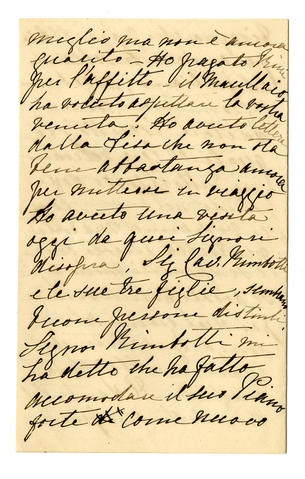 meglio ma non è ancora
guarito – Ho pagato
per l'affitto – il Macellaio
ha voluto aspettare la vostra
venuta – Ho avuto lettera
dalla Lisa che non sta
bene abbastanza ancora
per mettersi in viaggio
Ho avuto una visita
oggi da quei Signori
disopra, Sig Cav. Nimbotti
e le sue tre figlie, sembrano
buone persone distinti
Signor Nimbotti mi
ha detto che ha fatto
accomodare il suo Piano
forte come nuovo